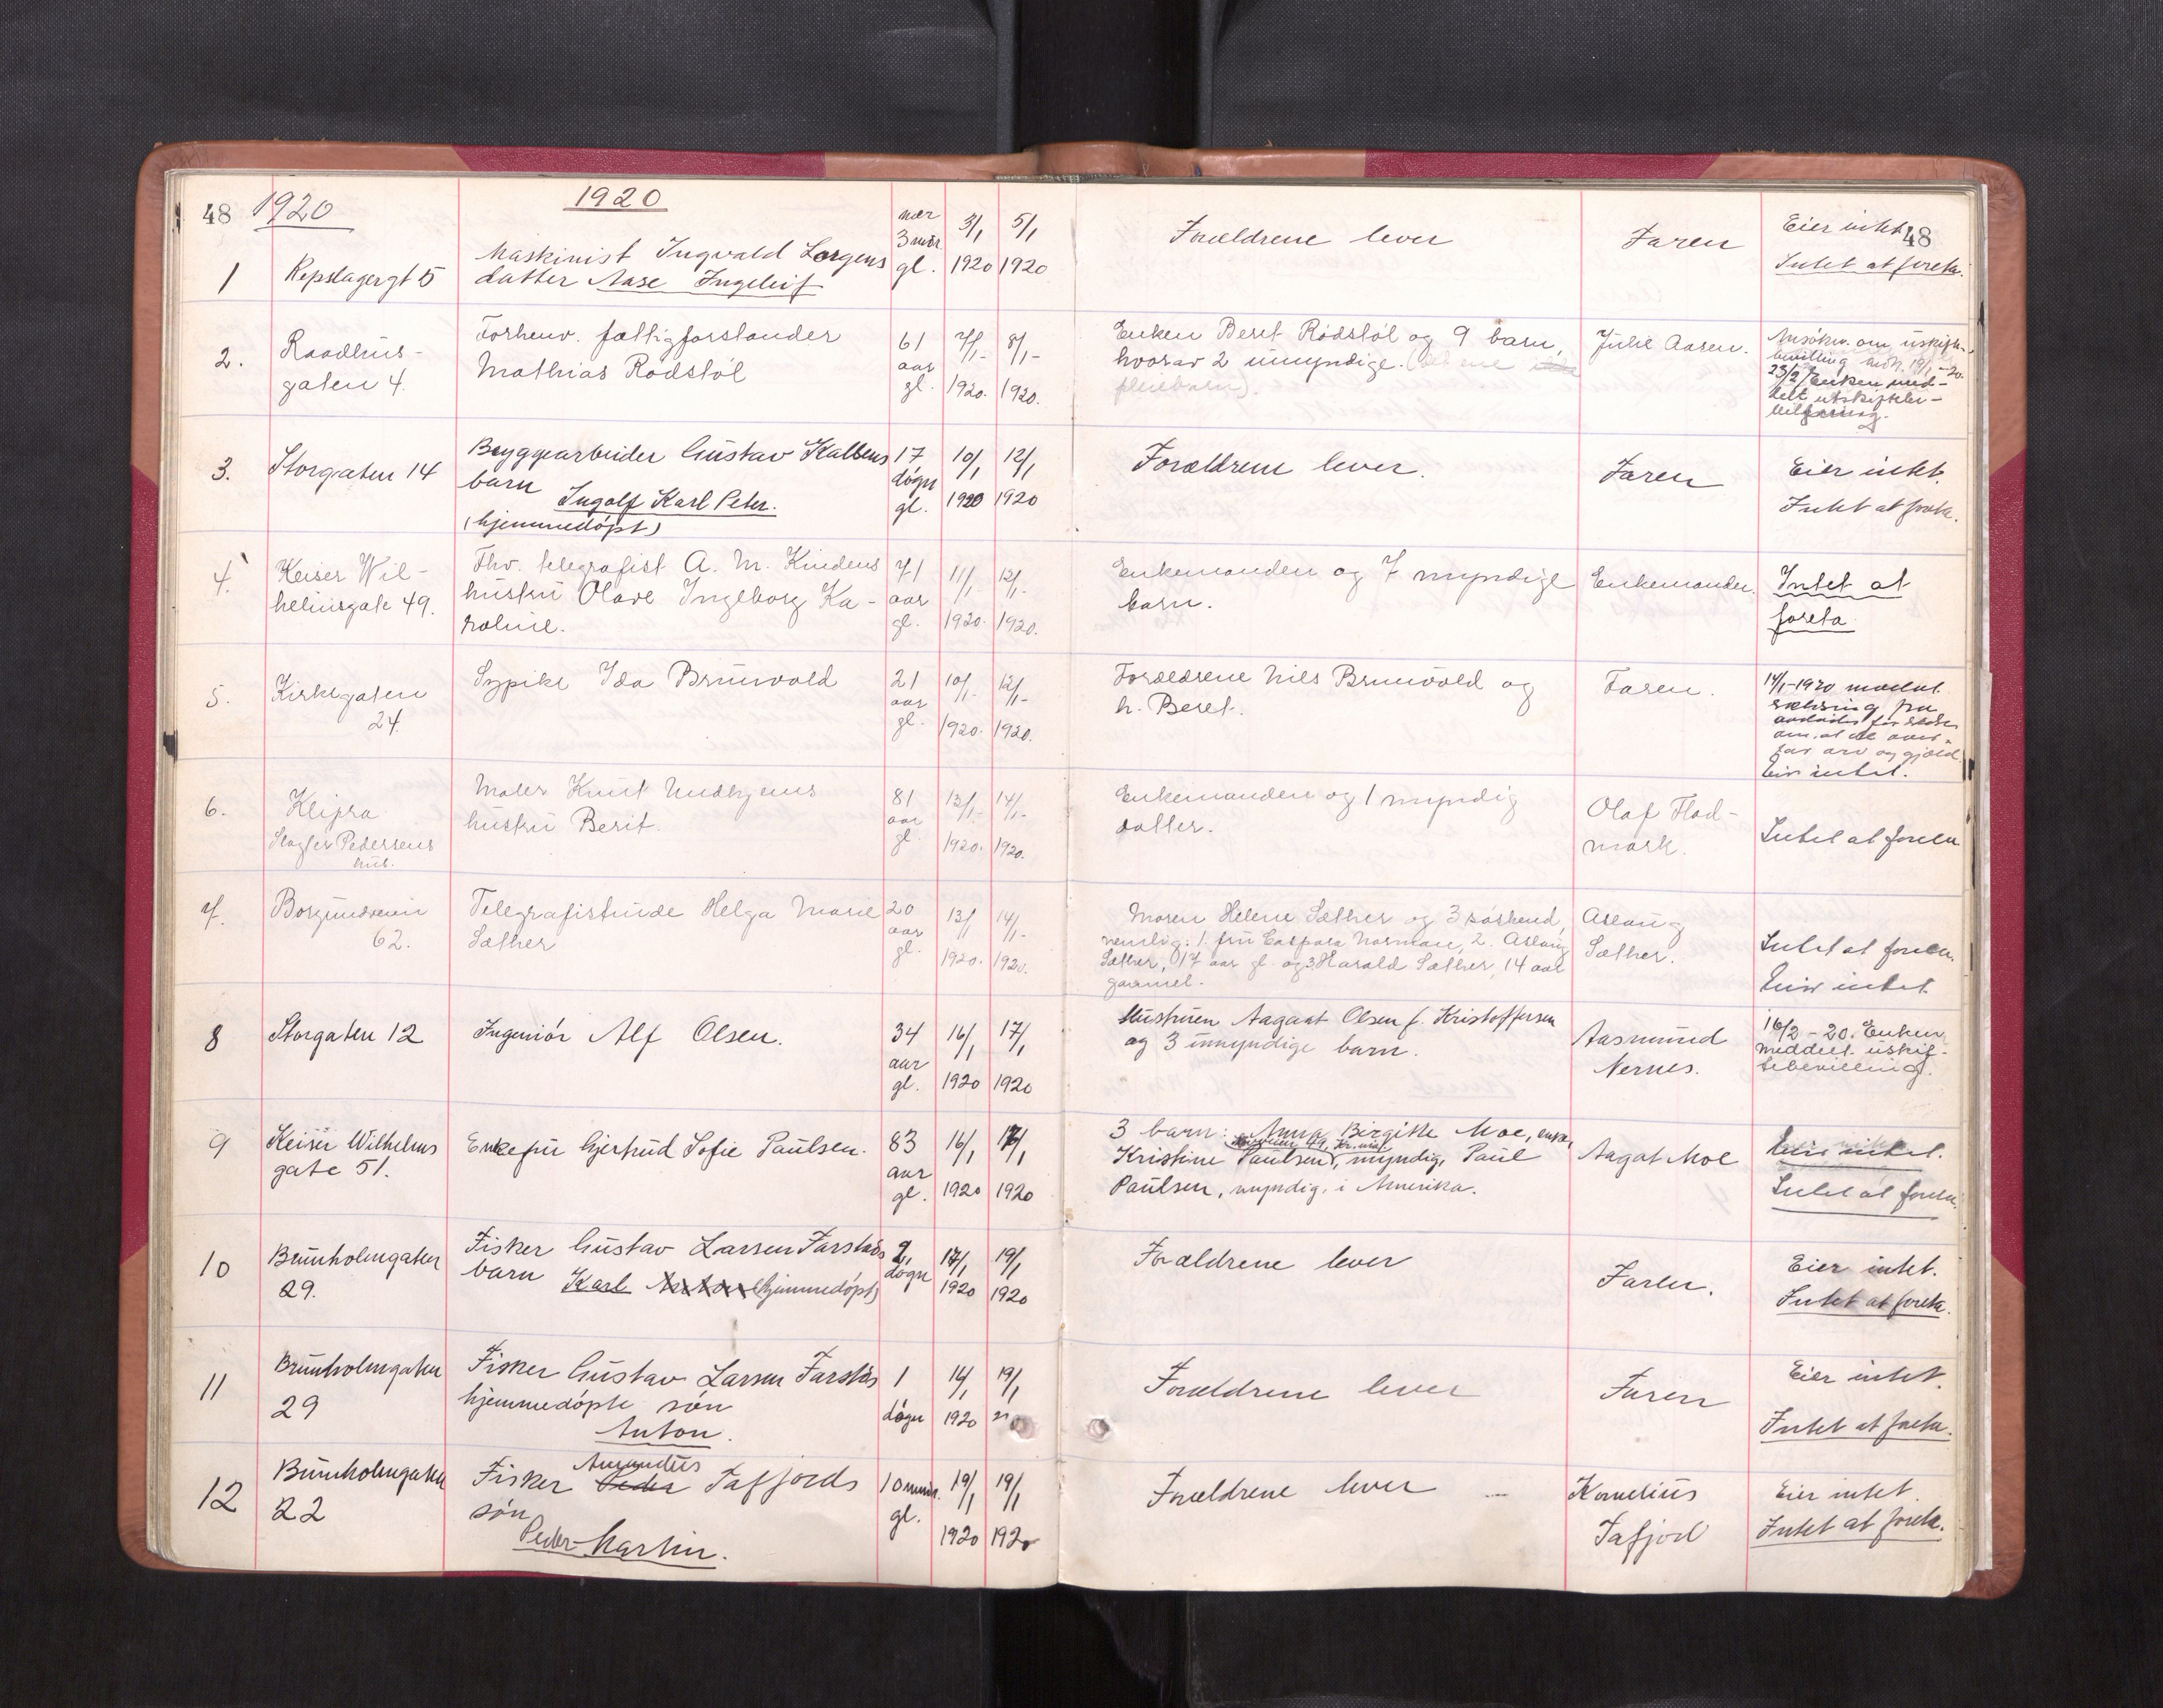 48 1920
1920
1 Repslagergt 5
Maskinist Ingvald Lorgens
datter Aase Ingeleif
nær
3 mdr.
gl.
3/1
1920
5/1
1920
Forældrene lever
Faren
Eier intet
48
Intet at foreta.
2. Raadhus-
gaten 4.
Forhenv. fattigforstander
Mathias Rödstöl
61
aar
gl.
7/1-
1920.
8/1-
1920.
Enken Beret Rödstöl og 9 barn,
hvorav 2 umyndige.
Julie Aasen.
Ansökn. om uskifte-
bevilling 19/1-20.
23/2 Enken med-
delt
3. Storgaten 14
Bryggearbeider Gustav Kalbens
barn
Ingolf Karl Peter.
(hjemmedöpt)
17
dögn
gl.
10/1
1920
12/1
1920
Forældrene lever.
Faren
Eier intet.
Intet at foreta.
4. Keiser Wil-
helmsgate 49.
Fhv. telegrafist A. M. Kindens
hustru Olave Ingeborg Ka-
roline.
71
aar
gl.
11/1
1920.
12/1-
1920.
Enkemanden og 7 myndige
barn.
Enkemanden.
Intet at
foreta
5. Kirkegaten
24.
Sypike Ida Brunvold
21
aar
gl.
10/1-
1920.
12/1-
1920.
Forældrene Nils Brunvold og
h. Beret.
Faren.
14/1-1920 modtat
erklæring fra
avdödes forældre
om, at de over-
tar arv og gjæld.
Eier intet.
6. Klipra
Slagter Pedersens
hus.
Maler Knut Undhjems
hustru Berit.
81
aar
gl.
13/1-
1920.
14/1-
1920.
Enkemanden og 1 myndig
datter.
Olaf Flad-
mark.
Intet at foreta
7. Borgundveien
62.
Telegrafistinde Helga Marie
Sæther
20
aar
gl.
13/1
1920.
14/1-
1920.
Moren Helene Sæther og 3 söskend,
nemlig: 1. fru Caspara Normann, 2. Aslaug
Sæther, 17 aar gl. og 3 Harald Sæther, 14 aar
gammel.
Aslaug
Sæther.
Intet at foreta.
Eier intet.
8 Storgaten 12
Ingeniör Alf Olsen.
34
aar
gl.
16/1
1920
17/1
1920
Hustruen Aagaat Olsen f. Kristoffersen
og 3 umyndige barn.
Aasmund
Nernes.
16/2-20. Enken
meddelt uskif-
tebevilling.
9 Keiser Wilhelms
gate 51.
Enkefru Gjertrud Sofie Paulsen.
83
aar
gl.
16/1
1920
17/1
1920
3 barn: Anna Birgitte Moe, enke,
Kristine Paulsen, myndig, Paul
Paulsen, myndig, i Amerika.
Aagat Moe
Eier intet.
Intet at foreta
10 Brunholmgaten
29.
Fisker Gustav Larsen Farstads
barn Karl Anton (hjemmedöpt)
2
dögn
17/1
1920
19/1
1920
Forældrene lever
Faren.
Eier intet.
Intet at foreta.
11 Brunholmgaten
29
Fisker Gustav Larsen Farstads
hjemmedöpte sön
Anton.
1
dögn
1920
19/1
Forældrene lever
Faren
Eier intet.
Intet at foreta.
12 Brunholmgaten
22
Amandus
Fisker Peder Tafjords
sön
Peder Martin.
10 min.
gl.
19/1
1920
19/1
1920
Forældrene lever
Kornelius
Tafjord
Eier intet.
Intet at foreta.